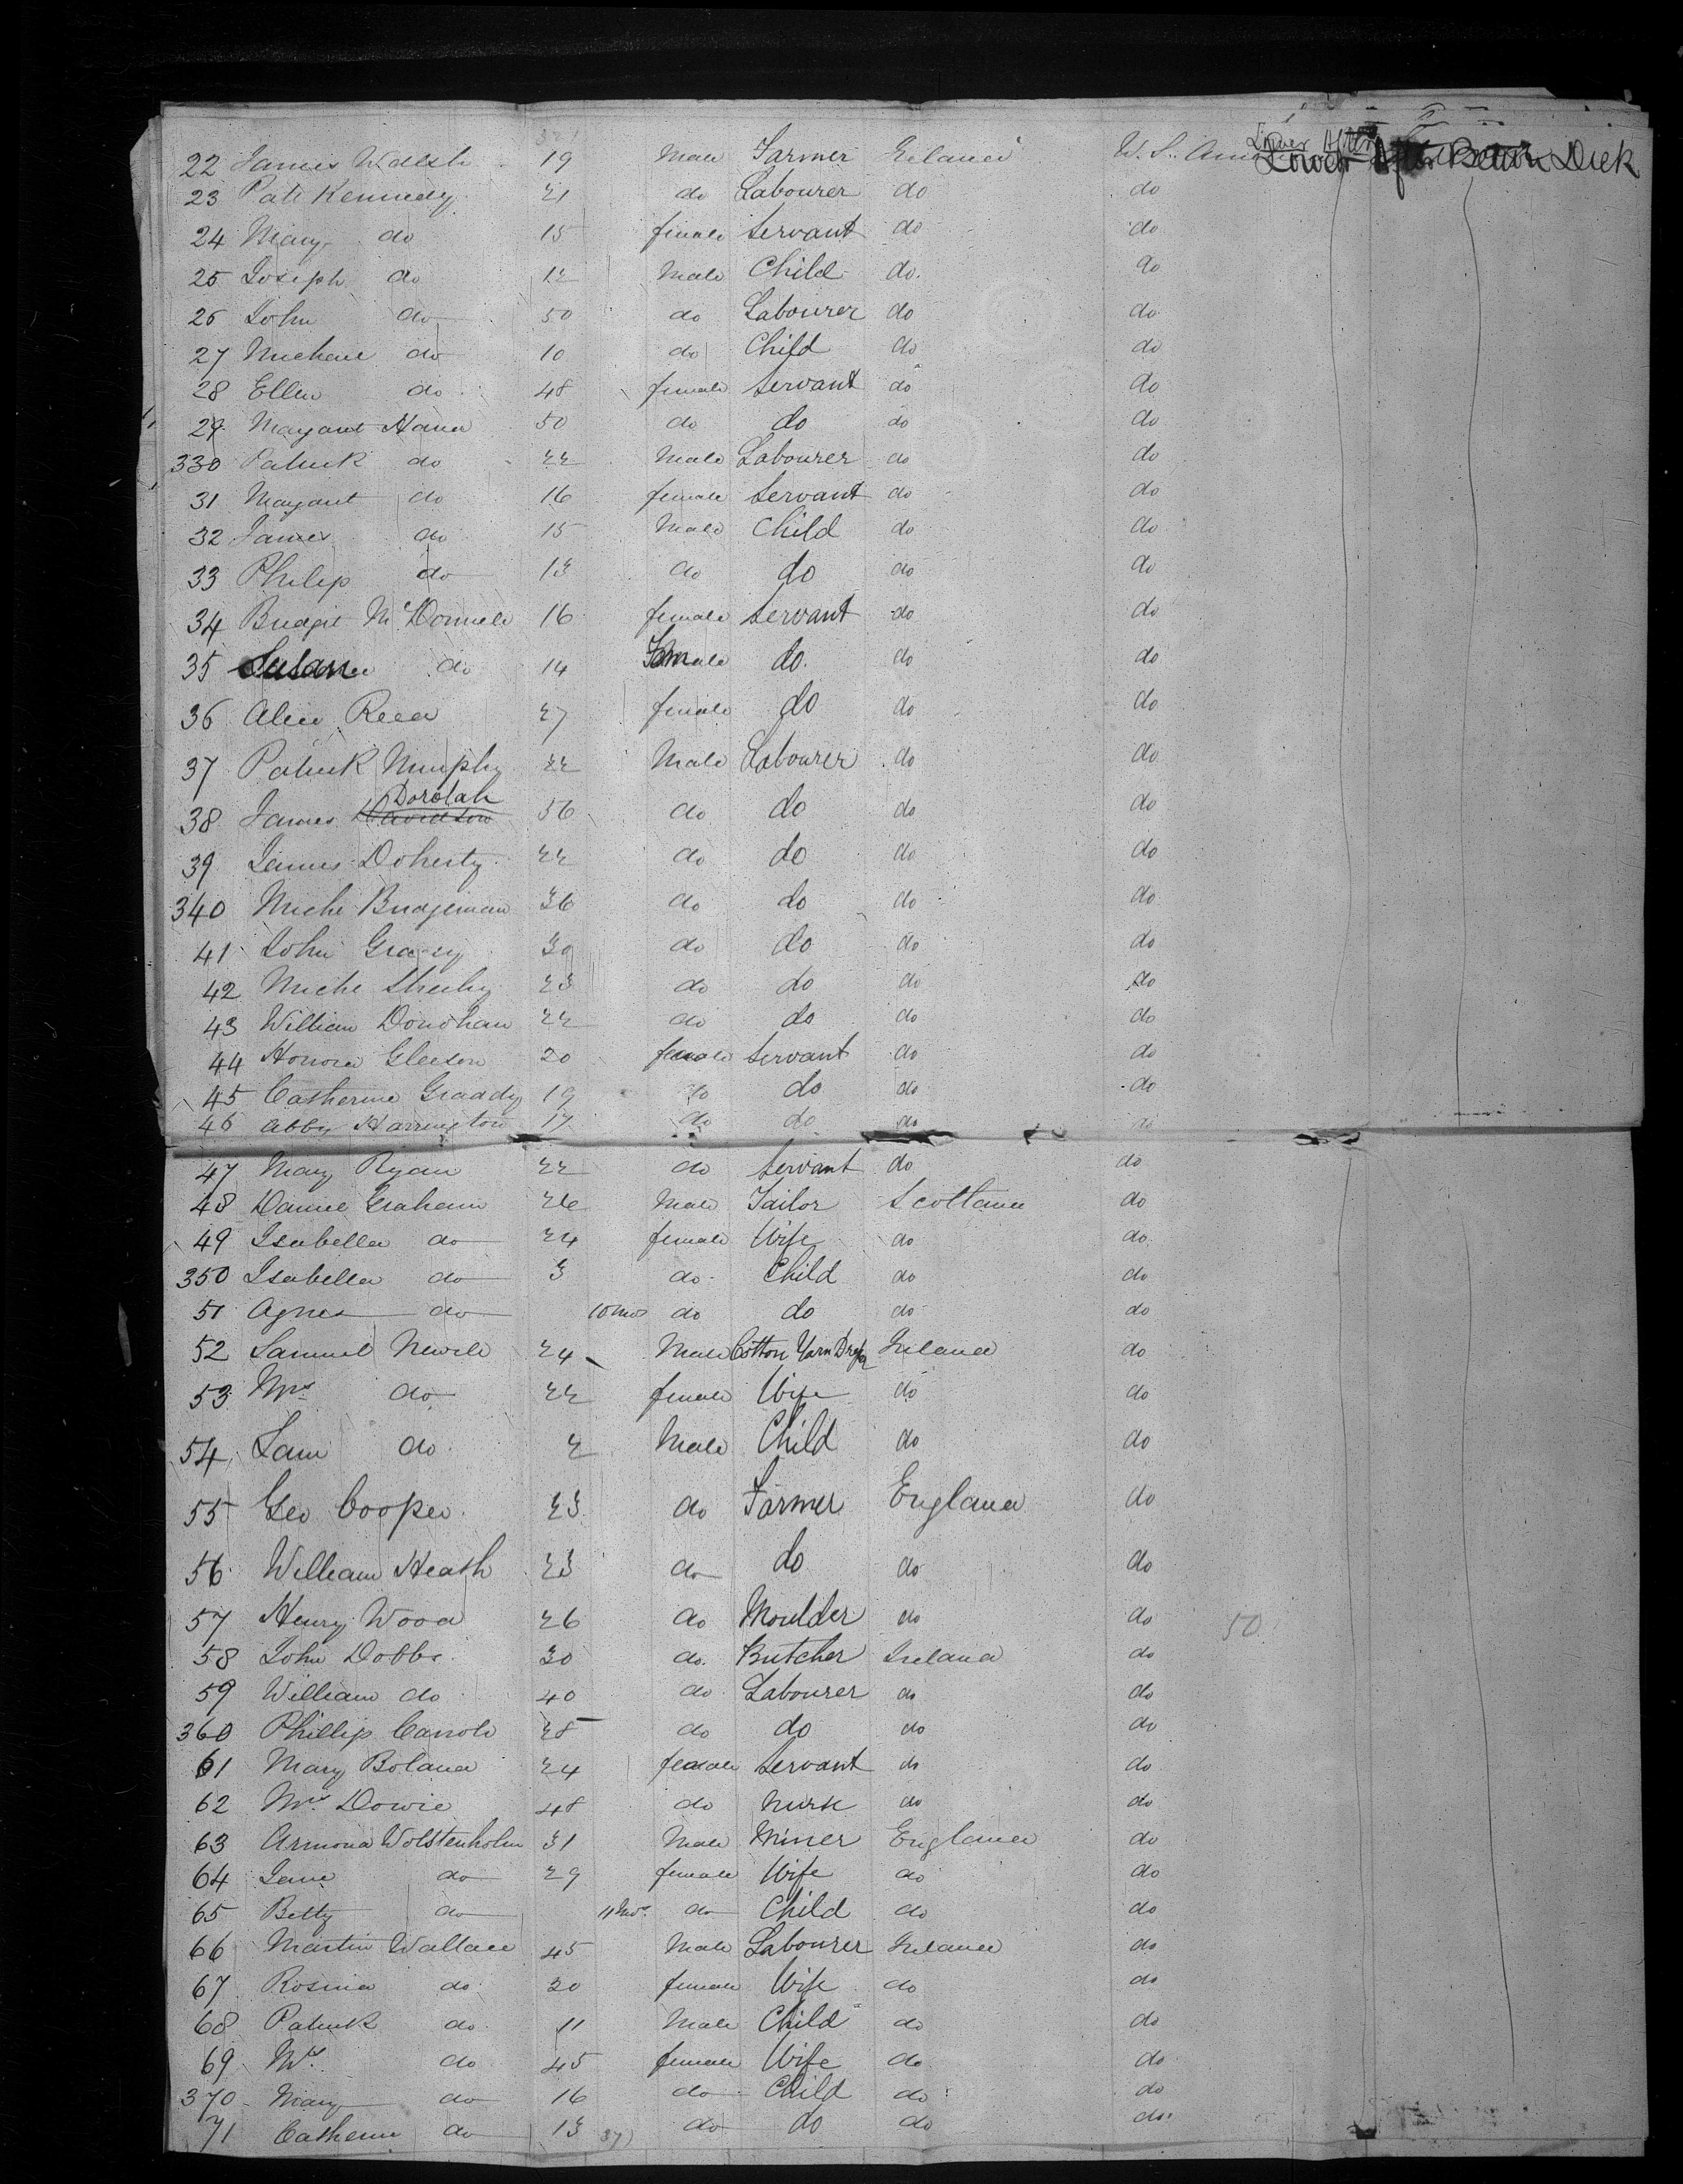 22 James Walsh 19 Male Farmer Ireland W. S. Lower After Between Deck
23 Patk Kennedy 21 do Labourer do do
24 Mary do 15 female Servant do do
25 Joseph do 12 Male Child do do
26 John do 50 do Labourer do do
27 Michael do 10 do Child do do
28 Ellen do 48 female Servant do do
29 Margaret Hand 50 do do do do
330 Patrick do 22 Male Labourer do do
31 Margaret do 16 female Servant do do
32 James do 15 Male Child do do
33 Philip do 13 do do do do
34 Bridget McDonnell 16 female Servant do do
35 Susan do 14 Female do do do
36 Alice Reed 27 female do do do
37 Patrick Murphy 22 Male Labourer do do
38 James Davidson Dorolah 56 do do do do
39 James Doherty 22 do do do do
340 Michl Bridgeman 36 do do do do
41 John Gracy 30 do do do do
42 Michl Sheehy 23 do do do do
43 William Donohan 22 do do do do
44 Honora Gleeson 20 female Servant do do
45 Catherine Graddy 19 do do do do
46 Abby Harrington 17 do do do do
47 Mary Ryan 22 do Servant do do
48 Daniel Graham 26 Male Tailor Scotland do
49 Isabella do 24 female Wife do do
350 Isabella do 3 do Child do do
51 Agnes do 10 Mos do do do do
52 Samuel Newell 24 Male Cotton Yarn Dresser Ireland do
53 Mrs do 22 female Wife do do
54 Sam do 2 Male Child do do
55 Geo Cooper 23 do Farmer England do
56 William Heath 23 do do do do
57 Henry Wood 26 do Moulder do do 50
58 John Dobbs 30 do Butcher Ireland do
59 William do 40 do Labourer do do
360 Phillip Carroll 28 do do do do
61 Mary Boland 24 female Servant do do
62 Mrs Dowie 48 do Nurse do do
63 Armond Wolstenholm 31 Male Miner England do
64 Jane do 29 female Wife do do
65 Betty do 11 Mos do Child do do
66 Martin Wallace 45 Male Labourer Ireland do
67 Rosina do 20 female Wife do do
68 Patrick do 11 Male Child do do
69 Mrs do 45 female Wife do do
370 Mary do 16 do Child do do
71 Catherine do 13 371 do do do do